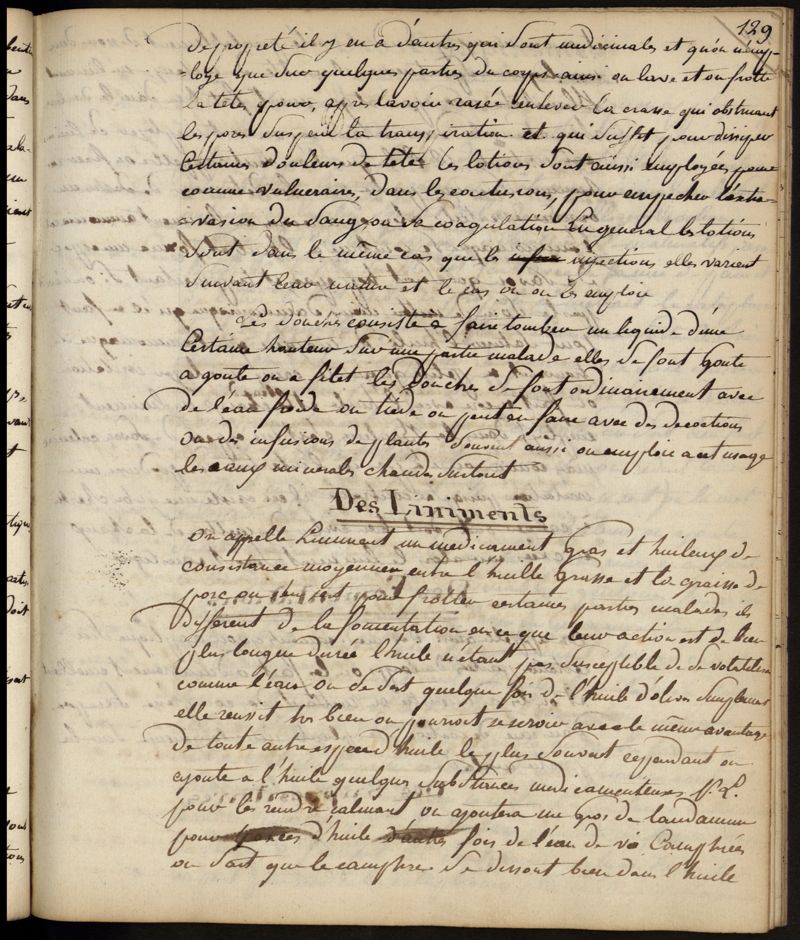 129
de propreté il y en a d'autres qui sont medicinales et qu'on n'emp-
-loye que sur quelques parties du corps ainsi on lave et on frotte
la tete pour, apres l'avoir rasée enlever la crasse qui obstruant
les pores suspend la transpiration et qui suffit pour dissiper
certaines douleurs de tete les lotions sont aussi employees
comme vulneraires, dans les contusions, pour empecher l'extra-
-vasion du sang ou sa coagulation En general les lotions
sont dans le même cas que les injections elles varient
suivant leur nature et le cas ou on les emploie
Les douches consiste à faire tomber un liquide d'une
certaine hauteur sur une partie malade elles se font goute
a goute ou a filet les douches se font ordinairement avec
de l'eau froide ou tiède on peut en faire avec des decoctions
ou des infusions de plantes souvent aussi on emploie a cet usage
les eaux minerales chaudes surtout
Des Liniments
On appelle Liniment un medicament gras et huileux de
consistance moyenne entre l'huille grasse et la graisse de
porc on s'en sert pour frotter certaines parties malades ils
different de la fomentation en ce que leur action est de bien
plus longue durée l'huile n'etant pas susceptible de se volatiliser
comme l'eau on se sert quelque fois de l'huile d'olives simplement
elle reussit tres bien on pourroit se servir avec le même avantage
de toute autre espece d'huile le plus souvent cependant on
ajoute a l'huile quelques substances medicamenteuses
pour les rendre calmant on ajoutera un gros de laudanum
pour onces d'huile d'autres fois de l'eau de vie camphrée
on sait que le camphre se dissout bien dans l'huile